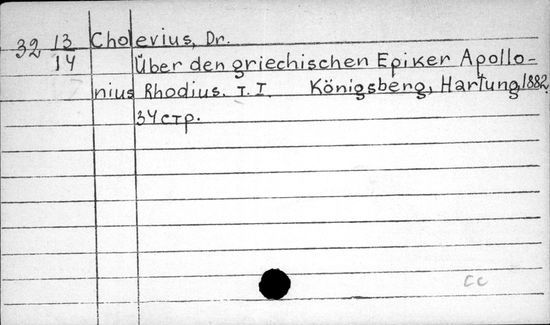 32 13/14 Cholevius, Dr.
Über den griechischen Epiker Apollo-
nius Rhodius. T. I. Königsberg, Hartung, 1882.
34 стр.
cc